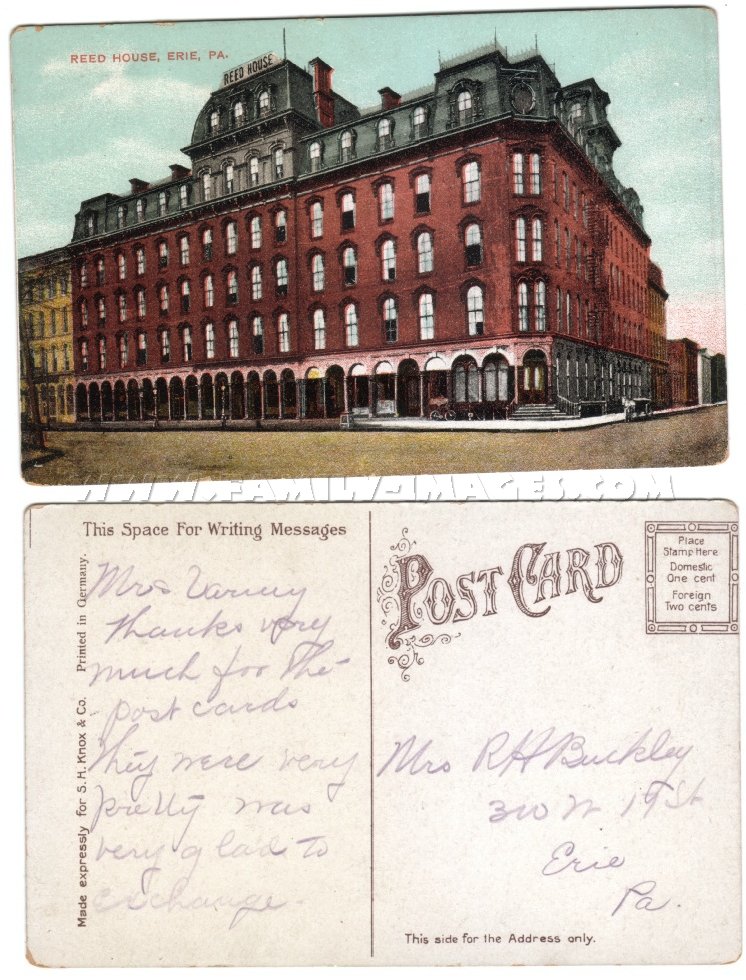 REED HOUSE, ERIE, PA.
REED HOUSE
WWW.FAMILY-IMAGES.COM
This Space For Writing Messages
Mrs Varney
thanks very
much for the
post cards
They were very
pretty was
very glad to
exchange.
Made expressly for S. H. Knox & Co. Printed in Germany.
POST CARD
Place
Stamp Here
Domestic
One cent
Foreign
Two cents
Mrs R H Buckley
310 W 19 St
Erie
Pa.
This side for the Address only.